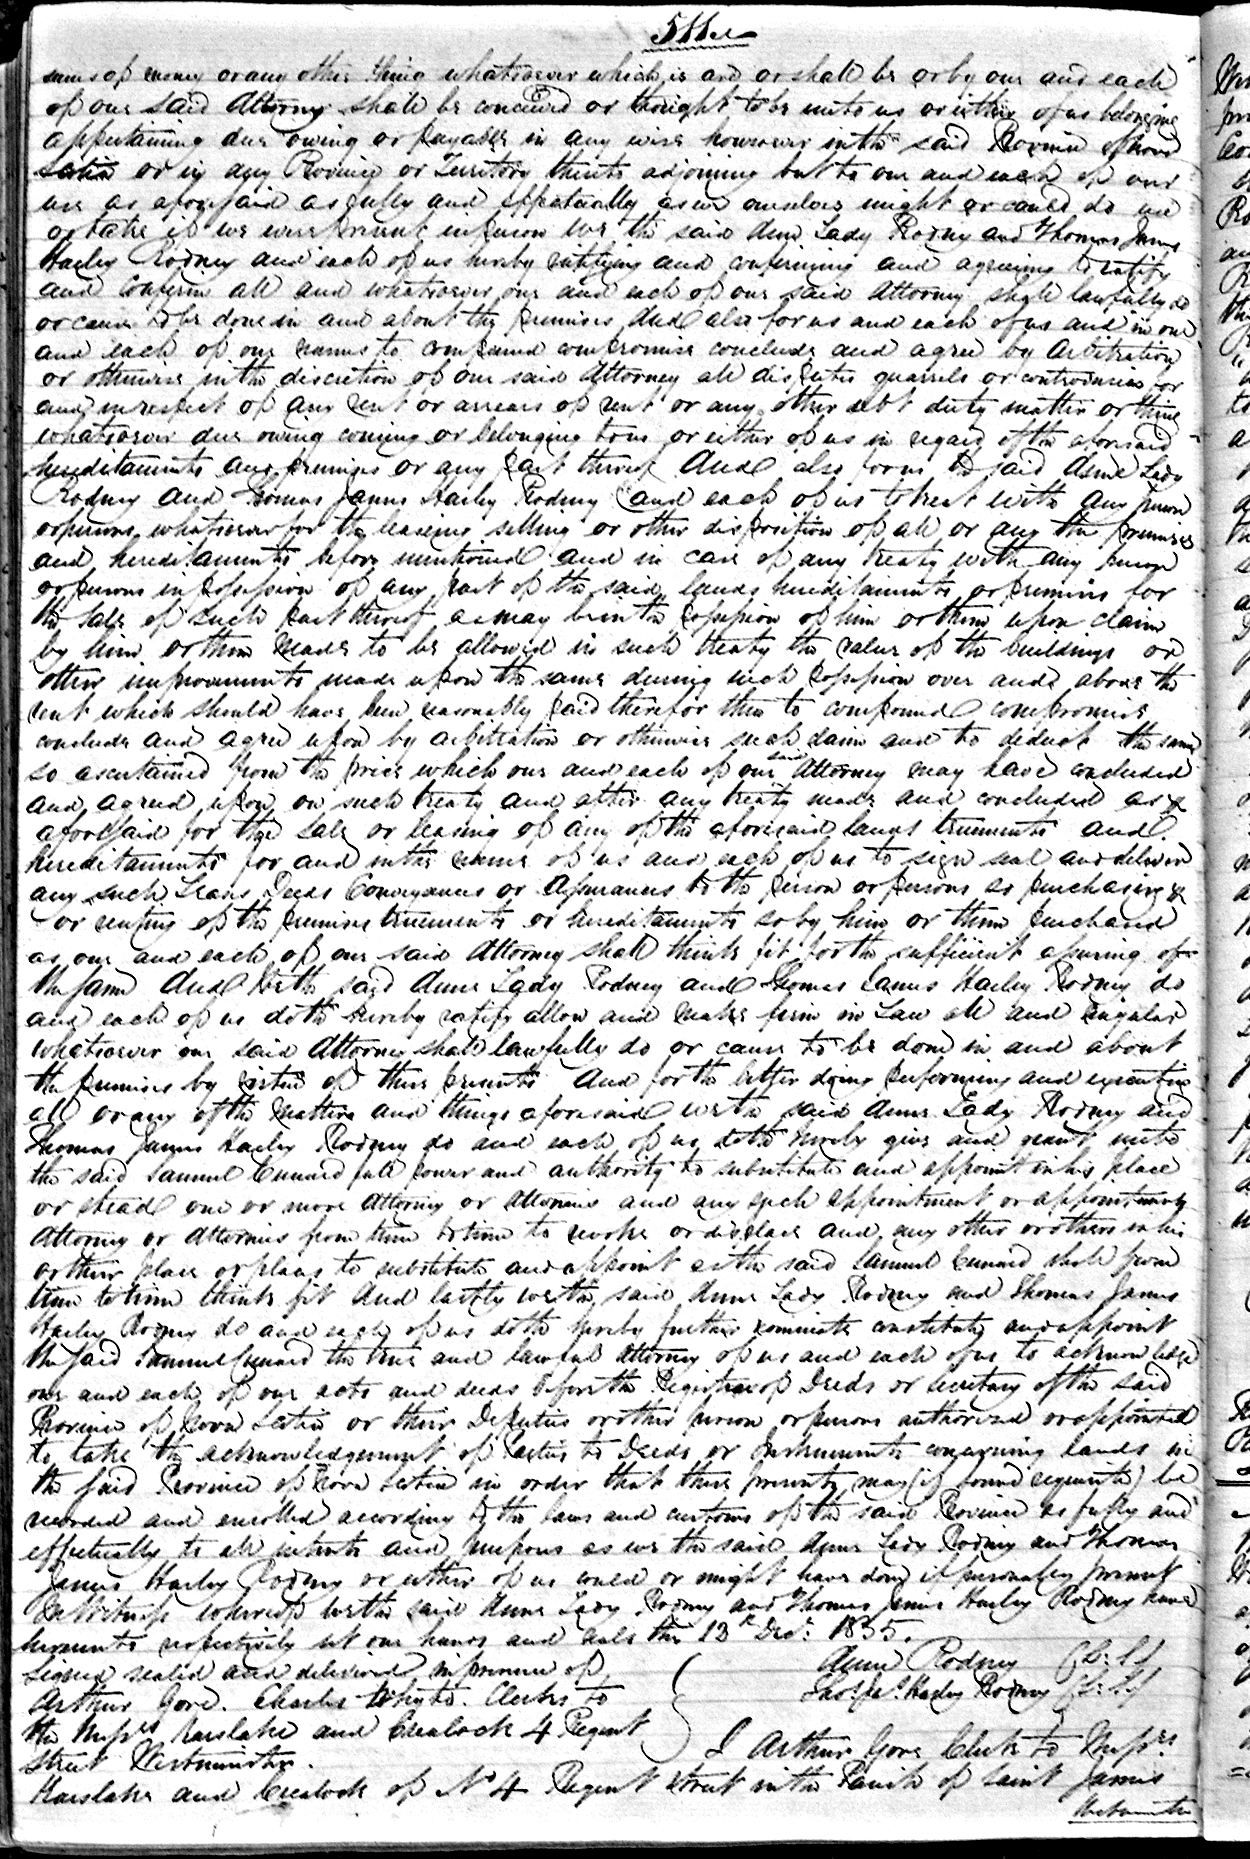 sums of money or any other thing whatsoever which is are or shall be or by our and each
of our said Attorney shall be conceived or thought to be unto us or either of us belonging
appertaining due owing or payable in any wise however in the said Province of Nova
Scotia or in any Province or Territory thereto adjoining but to our and each of our
use as aforesaid as fully and effectually as we ourselves might or could do use
or take if we were present in person We the said Anne Lady Rodney and Thomas James
Harley Rodney and each of us hereby ratifying and confirming and agreeing to ratify
and confirm all and whatsoever our and each of our said Attorney shall lawfully do
or cause to be done in and about the premises And also for us and each of us and in our
and each of our names to compound compromise conclude and agree by arbitration
or otherwise in the discretion of our said Attorney all disputes quarrels or controversies for
and in respect of any rent or arrears of rent or any other debt duty matter or thing
whatsoever due owing coming or belonging to us or either of us in regard of the aforesaid
hereditaments and premises or any part thereof And also for us the said Anne Lady
Rodney and Thomas James Harley Rodney and each of us to treat with any person
or persons whatsoever for the leasing selling or other disposition of all or any the premises
and hereditaments before mentioned and in case of any treaty with any person
or persons in possession of any part of the said lands hereditaments or premises for
the sale of such part thereof as may be in the possession of him or them upon claim
by him or them made to be allowed in such treaty the value of the buildings or
other improvements made upon the same during such possession over and above the
rent which should have been reasonably paid therefor then to compound compromise
conclude and agree upon by arbitration or otherwise such claim and to deduct the same
so ascertained from the price which our and each of our said Attorney may have concluded
and agreed upon on such treaty and after any treaty made and concluded as
aforesaid for the sale or leasing of any of the aforesaid lands tenements and
hereditaments for and in the name of us and each of us to sign seal and deliver
any such Leases Deeds Conveyances or Assurances to the person or persons so purchasing
or renting of the premises tenements or hereditaments so by him or them purchased
as our and each of our said Attorney shall think fit for the sufficient assuring of
the same And We the said Anne Lady Rodney and Thomas James Harley Rodney do
and each of us doth hereby ratify allow and make firm in Law all and singular
whatsoever our said Attorney shall lawfully do or cause to be done in and about
the premises by virtue of these presents And for the better doing performing and executing
all or any of the matters and things aforesaid we the said Anne Lady Rodney and
Thomas James Harley Rodney do and each of us doth hereby give and grant unto
the said Samuel Cunard full power and authority to substitute and appoint in his place
or stead one or more Attorney or Attornies and any such appointment or appointments
Attorney or Attornies from time to time to revoke or displace and any other or others in his
or their place or places to substitute and appoint as the said Samuel Cunard shall from
time to time think fit And lastly we the said Anne Lady Rodney and Thomas James
Harley Rodney do and each of us doth hereby further nominate constitute and appoint
the said Samuel Cunard the true and lawful Attorney of us and each of us to acknowledge
our and each of our acts and deeds before the Registrar of Deeds or Secretary of the said
Province of Nova Scotia or their Deputies or other person or persons authorized or appointed
to take the acknowledgement of Parties to Deeds or Instruments concerning lands in
the said Province of Nova Scotia in order that these presents may (if found requisite) be
recorded and enrolled according to the laws and customs of the said Province as fully and
effectually to all intents and purposes as we the said Anne Lady Rodney and Thomas
James Harley Rodney or either of us could or might have done if personally present
In Witness whereof We the said Anne Lady Rodney and Thomas James Harley Rodney have
hereunto respectively set our hands and seals this 13th Decr. 1835.
Signed sealed and delivered in presence of
Anne Rodney (L.S.)
Arthur Gore. Charles Whyte. Clerks to
Thos. Jas. Harley Rodney (L.S.)
the Messrs Karslake and Crealock 4 Regent
Street Westminster.
I Arthur Gore Clerk to Messrs.
Karslake and Crealock of No 4 Regent Street in the Parish of Saint James
Westminster